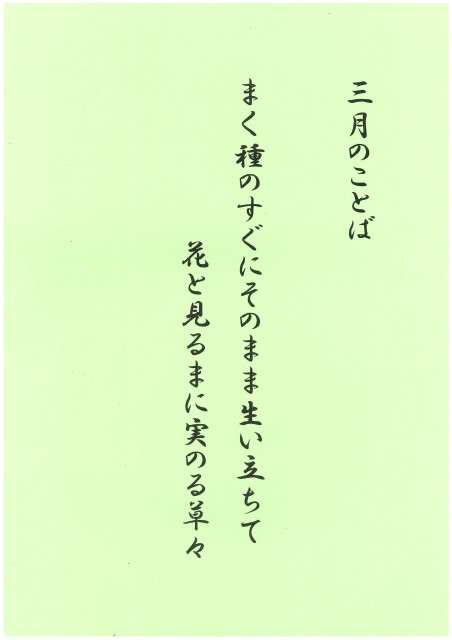 三月のことば
まく種のすぐにそのまま生い立ちて
花と見るまに実のる草々